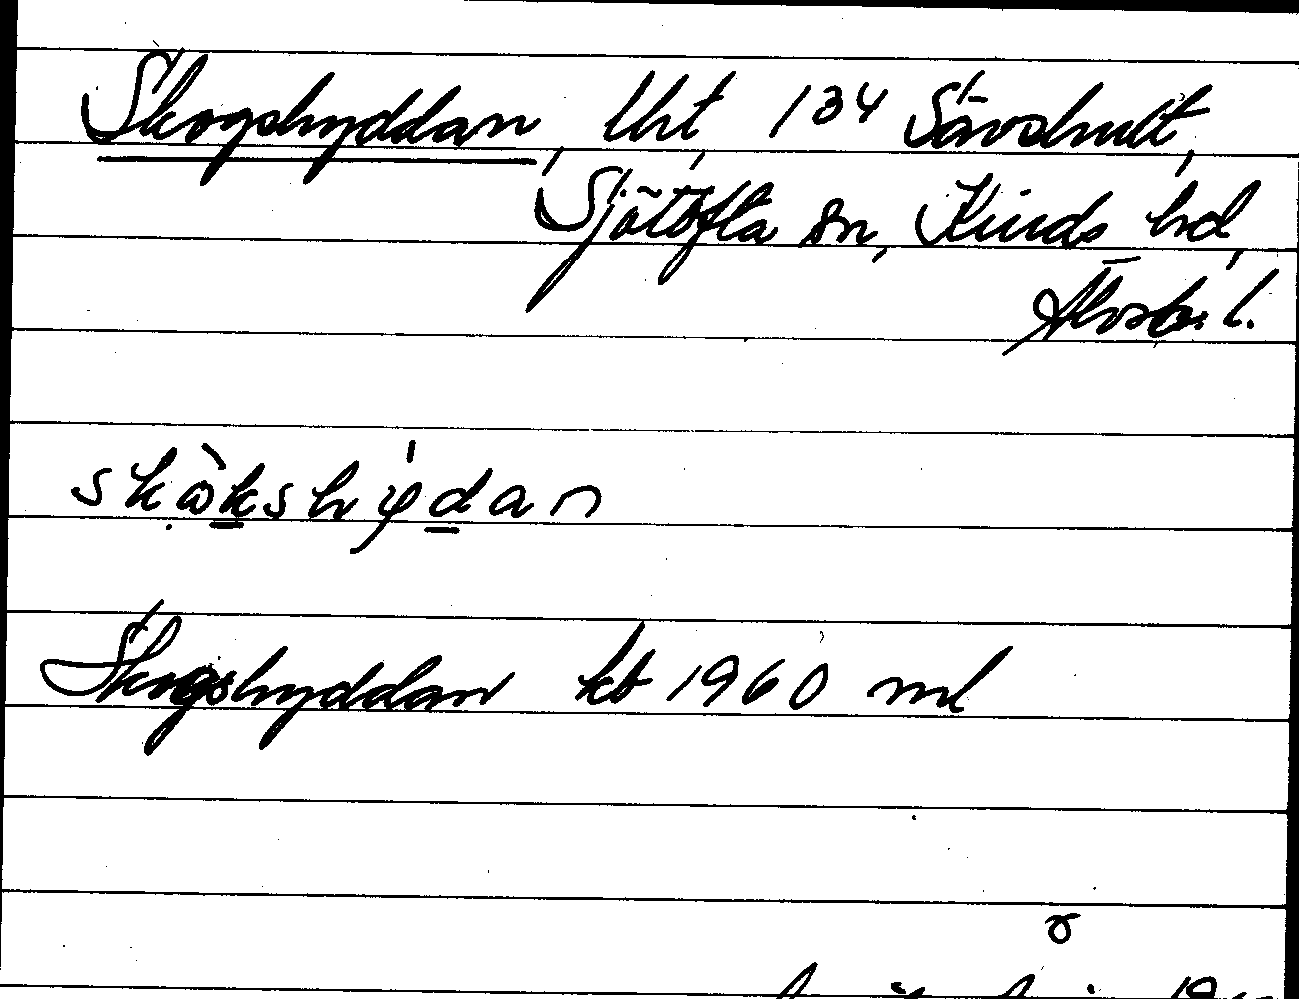 Skogshyddan, lht, 134 Sävshult,
Sjötofta sn, Kinds hd,
Älvsb. l.
skòkshýdan
Skogshyddan kb 1960 ml